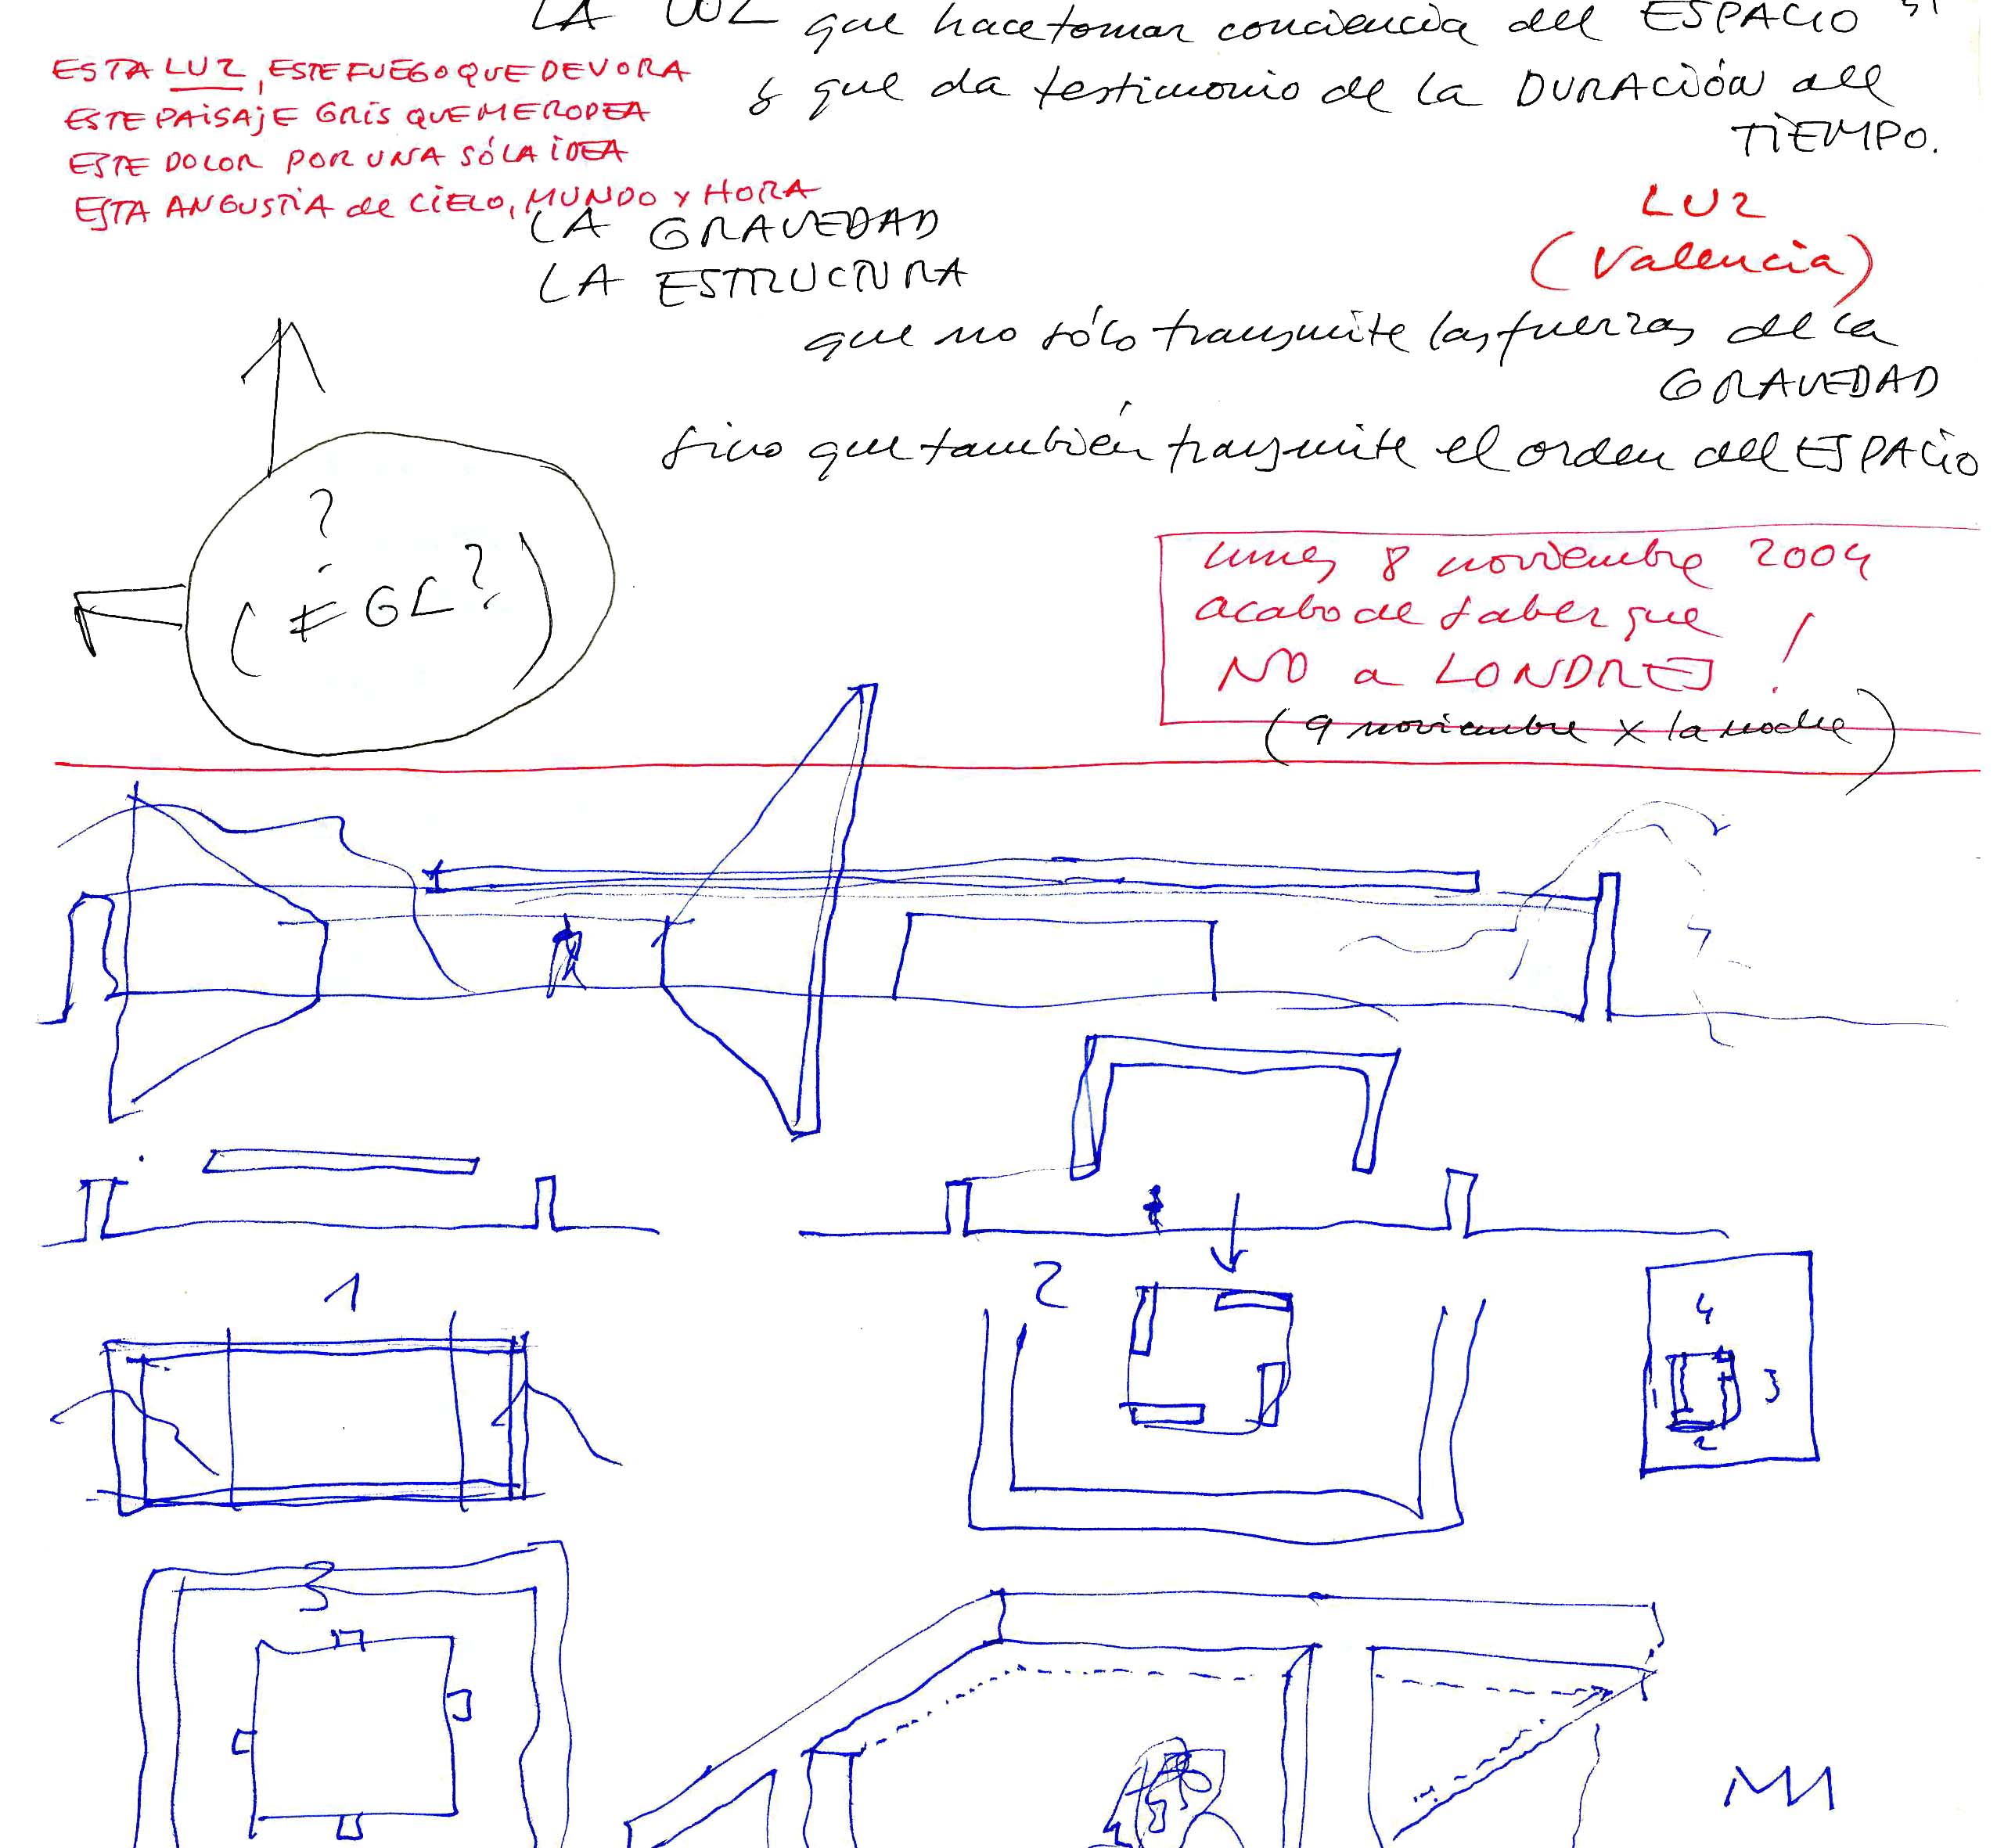 LA LUZ que hace tomar conciencia del ESPACIO
y que da testimonio de la DURACIÓN del
TIEMPO.
ESTA LUZ, ESTE FUEGO QUE DEVORA
ESTE PAISAJE GRIS QUE ME RODEA
ESTE DOLOR POR UNA SÓLA IDEA
ESTA ANGUSTIA de CIELO, MUNDO Y HORA
LUZ
(Valencia)
LA GRAVEDAD
LA ESTRUCTURA
que no sólo transmite las fuerzas de la
GRAVEDAD
sino que también transmite el orden del ESPACIO
?
(≠ GL?)
lunes 8 noviembre 2004
acabo de saber que
NO a LONDRES!
(9 noviembre x la noche)
1
2
4
1
3
2
3